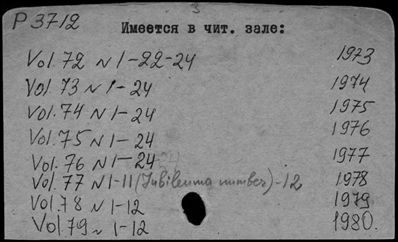 P 3712
3
Имеется в чит. зале:
Vol. 72 N 1-22-24 1973
Vol. 73 N 1-24 1974
Vol. 74 N 1-24 1975
Vol. 75 N 1-24 1976
Vol. 76 N 1-24 1977
Vol. 77 N 1-11 (Jubileuma number)-12 1978
Vol. 78 N 1-12 1979
Vol 79 N 1-12 1980.